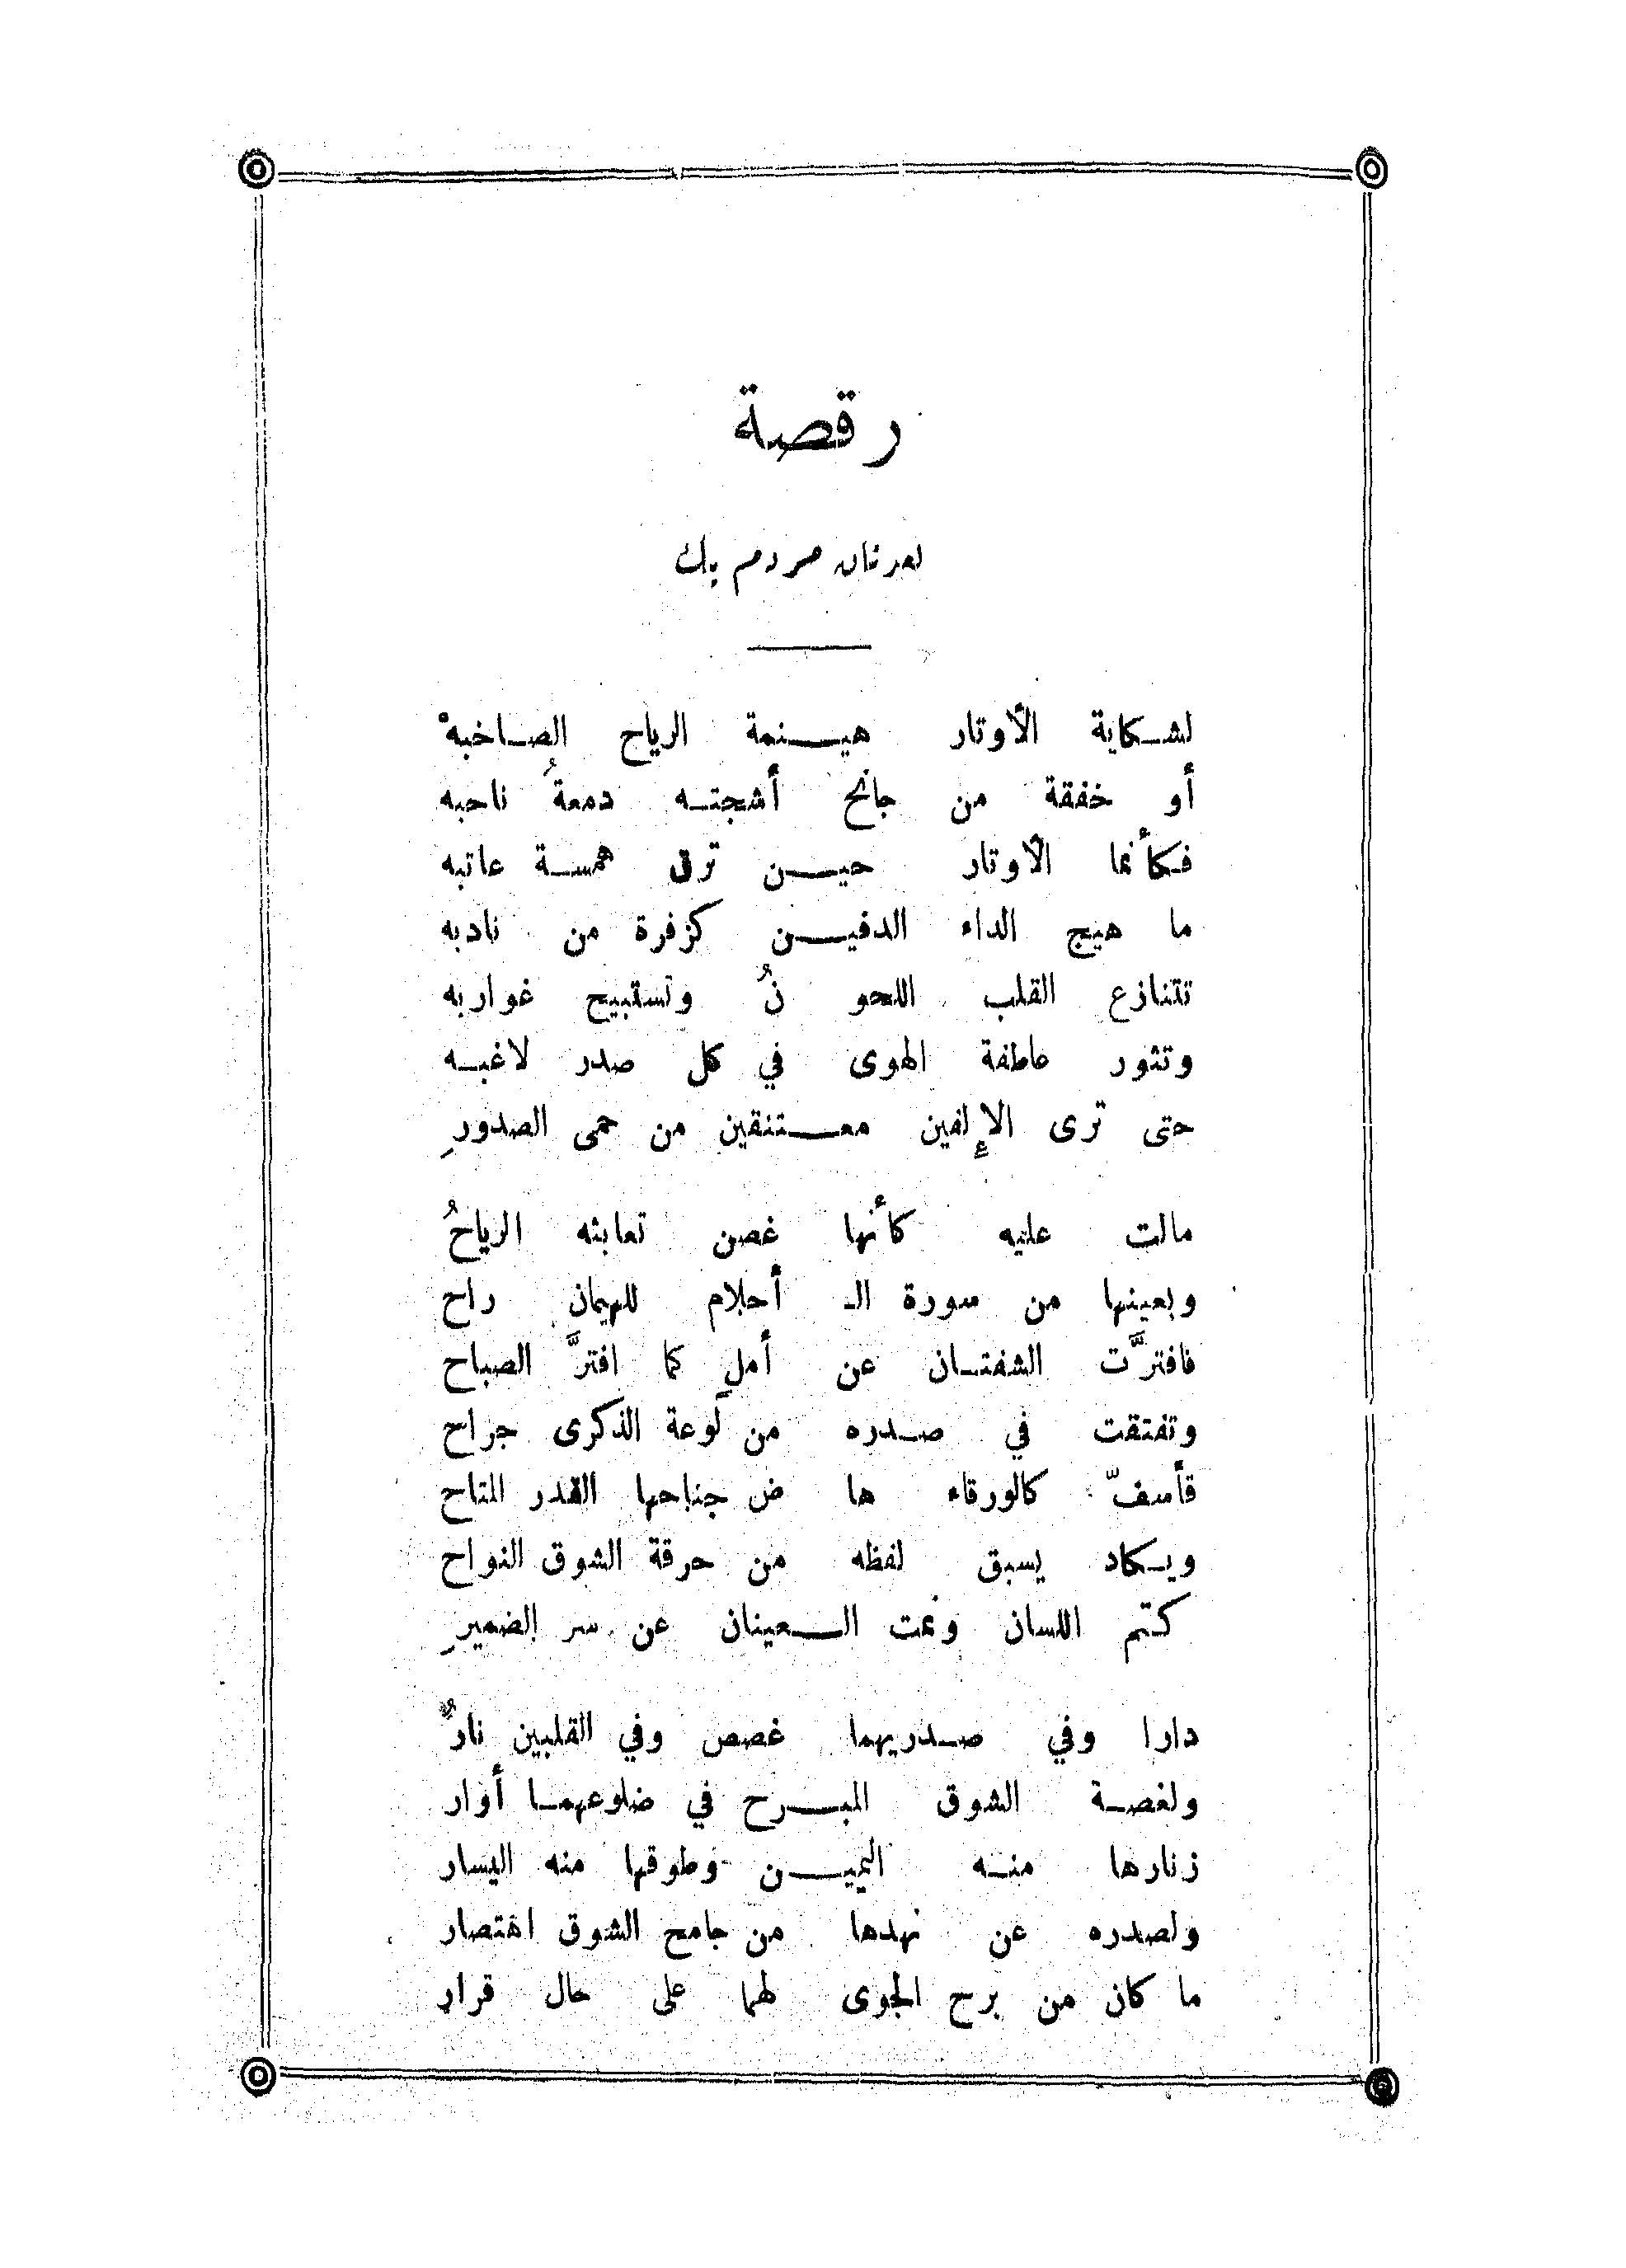 رقصة
لعدنان مردم بك
لشكاية الأوتار هينمة الرياح الصاخبهْ
أو خفقة من جانح أشجته دمعةُ ناحبه
فكأنما الأوتار حين ترق همسة عاتبه
ما هيج الداء الدفين كزفرة من نادبه
تتنازع القلب اللحو نُ وتستبيح غواربه
وتثور عاطفة الهوى في كل صدر لاغبه
حتى ترى الإلفين معتنقين من حمى الصدورِ
مالت عليه كأنها غصن تعابثه الرياحُ
وبعينها من سورة الـ أحلام للهيمان راح
فافترَّت الشفتان عن أملٍ كما افترَّ الصباح
وتفتقت في صدره من لوعة الذكرى جراح
فأسفّ كالورقاء ها ض جناحها القدر المتاح
ويكاد يسبق لفظه من حرقة الشوق النواح
كتم اللسان ونمت العينان عن سر الضميرِ
دارا وفي صدريهما غصص وفي القلبين نارٌ
ولغصة الشوق المبرح في ضلوعهما أوار
زنارها منه اليمين وطوقها منه اليسار
ولصدره عن نهدها من جامح الشوق اهتصار
ما كان من برح الجوى لهما على حال قرار